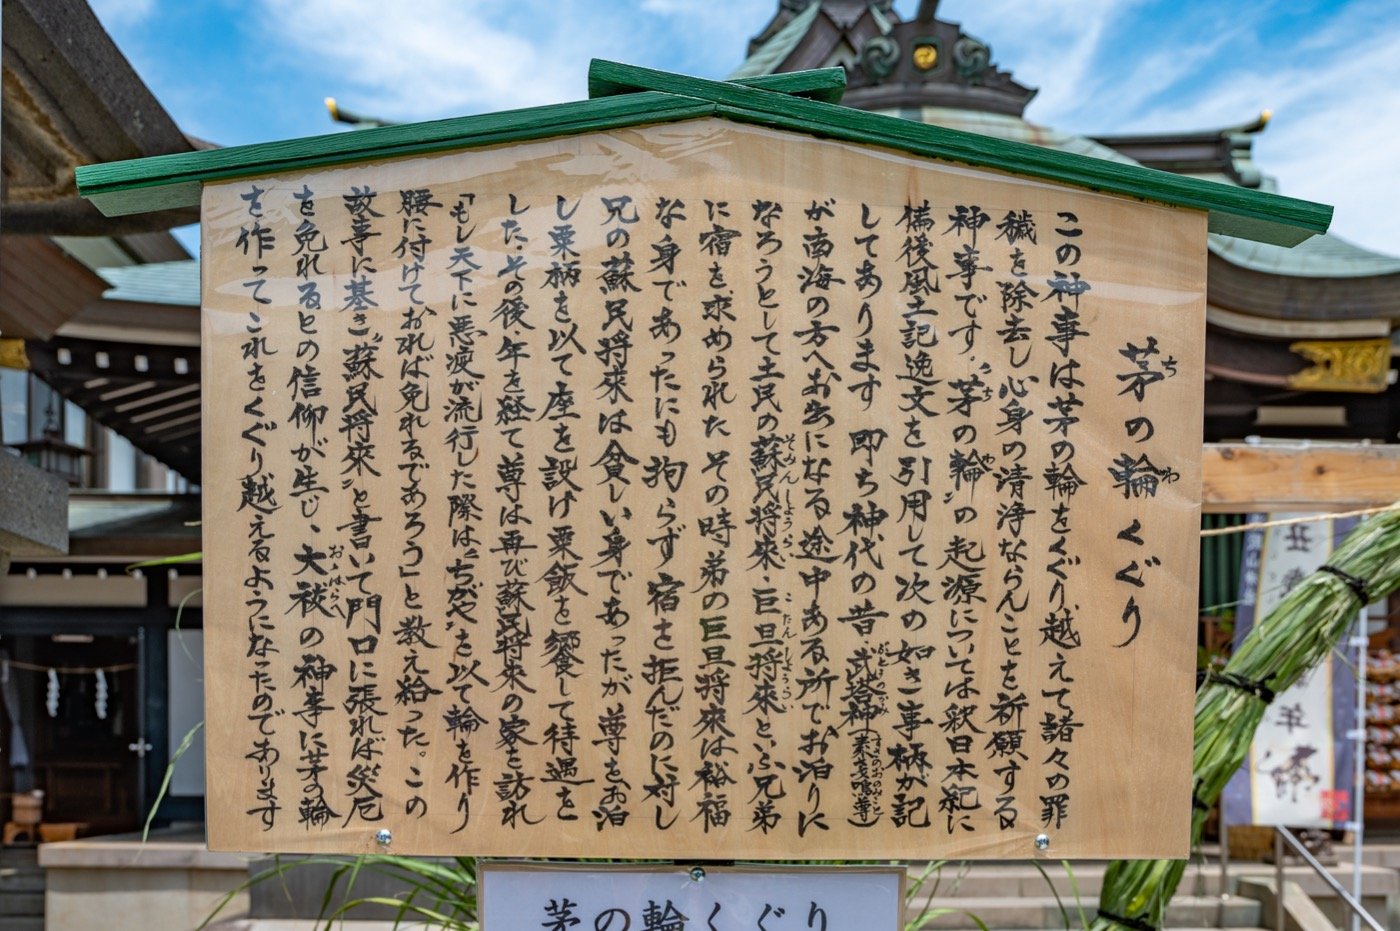 茅の輪くぐり
この神事は茅の輪をくぐり越えて諸々の罪
穢を除去し心身の清浄ならんことを祈願する
神事です。〝茅の輪〟の起源については釈日本紀に
備後風土記逸文を引用して次の如き事柄が記
してあります 即ち神代の昔 武塔神(素戔嗚尊)
が南海の方へお出になる途中ある所でお泊りに
なろうとして土民の蘇民将來・巨旦将來とふ兄弟
に宿を求められた その時弟の巨旦将來は裕福
な身であったにも拘らず宿を拒んだのに対し
兄の蘇民将來は貧しい身であったが尊をお泊
し粟柄を以て座を設け粟飯を饗して待遇を
した。その後年を経て尊は再び蘇民将來の家を訪れ
「もし天下に悪疫が流行した際は〝ちがや〟を以て輪を作り
腰に付けておれば免れるであろう」と教え給った。この
故事に基き〝蘇民将來〟と書いて門口に張れば災厄
を免れるとの信仰が生じ、大祓の神事に茅の輪
を作ってこれをくぐり越えるようになったのであります
茅の輪くぐり